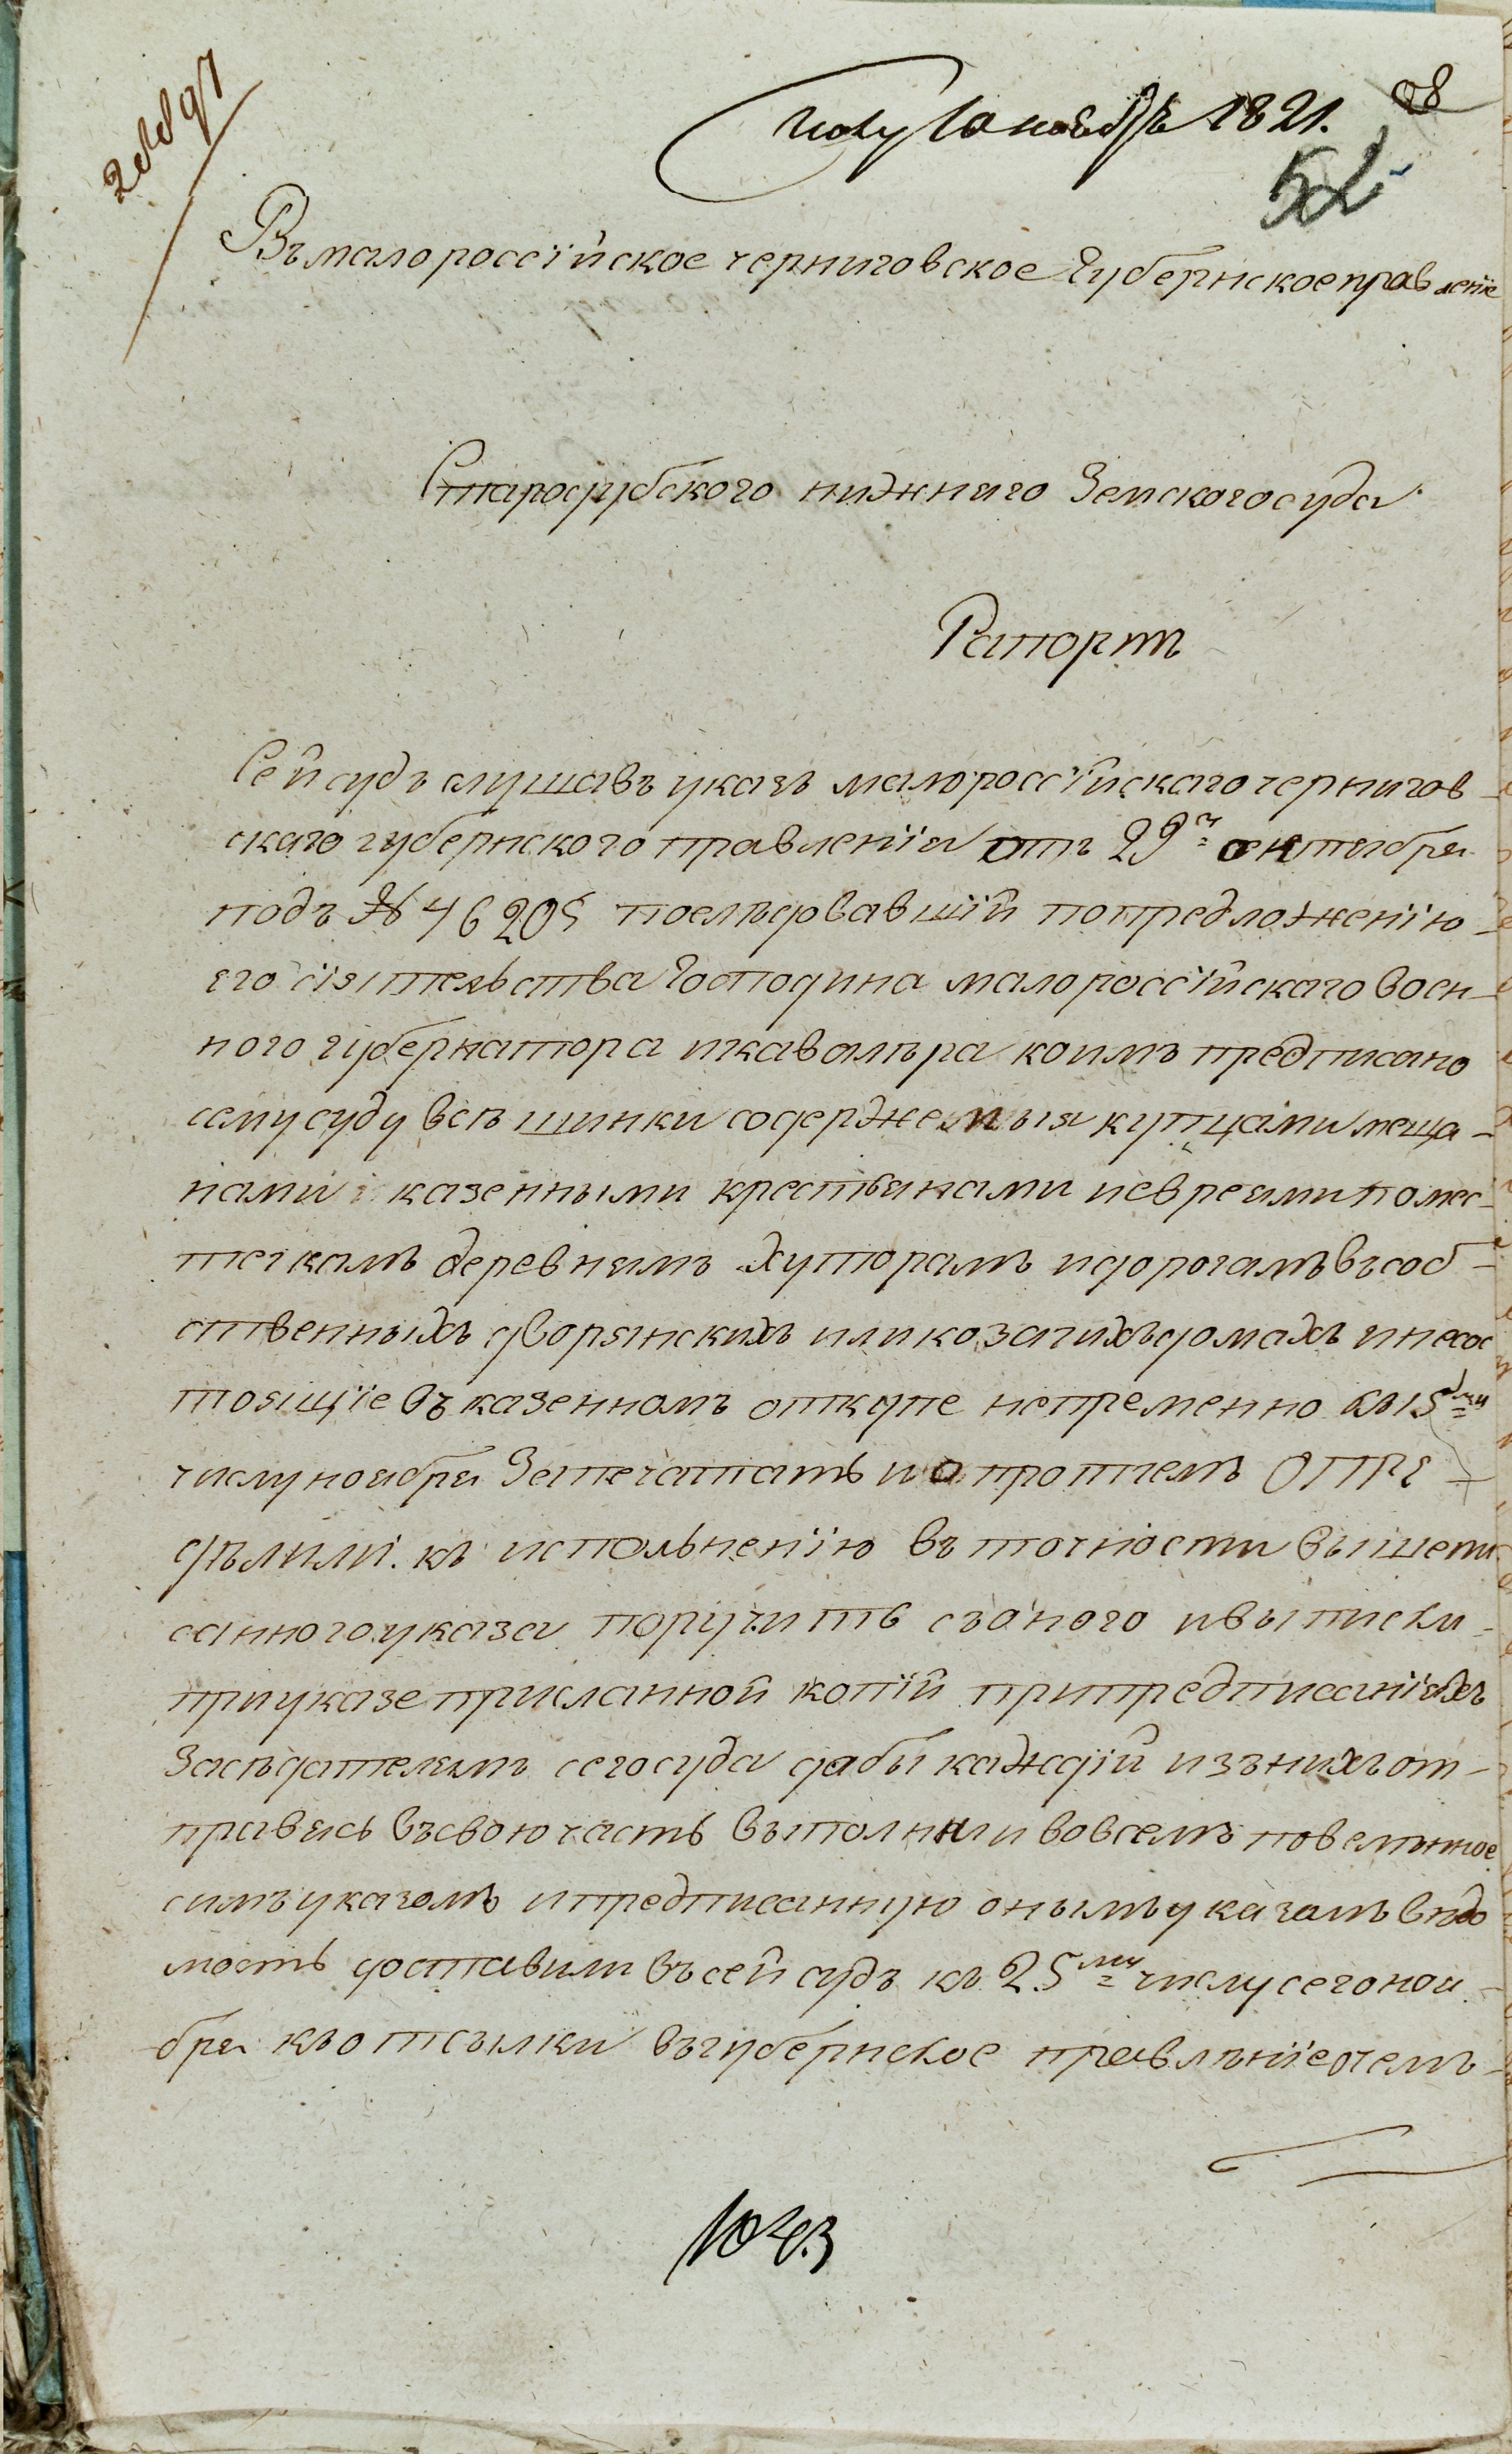 полу 10 ноября 1821.
52
Въ малороссїйское черниговское Губернское правленїе
Стародубского нижняго Земского суда
Рапортъ
Сей судъ слушавъ указъ малороссїйскаго чернигов
скаго губернского правленїя отъ 29го октября
подъ № 46205 последовавшїй по предложенїю
его сїятельства Господина малороссїйскаго воен-
ного губернатора и кавалѣра коимъ предписано
сему суду всѣ шинки содержемыя купцами меща-
нами и казенными крестьянами и евреями по мес-
течкамъ деревнямъ хуторамъ и дорогамъ въ соб-
ственныхъ дворянскихъ или козачихъ домахъ и несос
тоящїе въ казенномъ откупе непременно къ 15му
числу ноября Запечатать и о протчемъ ОПРЕ-
дѣлили. къ испольненїю въ точности вышепи
санного указа поручить съ оного и выписки
при указе присланной копїй при предписанїяхъ
Засѣдателямъ сего суда дабы каждїй изъ нихъ от-
правясь въ свою часть выполнили во всемъ повелѣнное
симъ указомъ и предписанную онымъ указамъ вѣдо
мость доставили въ сей судъ къ 25му числу сего ноя-
бря къ отсылки въ губернское правлѣнїе о чемъ-